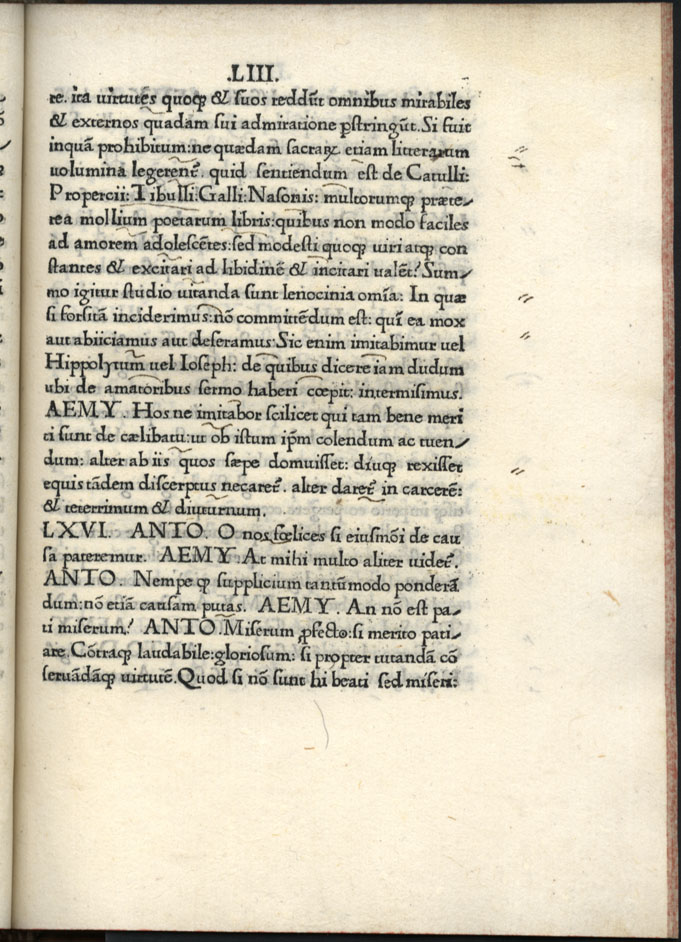 .LIII.
re. ita uirtutes quoqꝫ & suos reddũt omnibus mirabiles
& externos quadam sui admiratione ꝑstringũt. Si fuit
inquã prohibitum: ne quædam sacraꝝ etiam litterarum
uolumina legerent᷒. quid sentiendum est de Catulli:
Propercii: Tibulli: Galli: Nasonis: multorumqꝫ præte⸗
rea mollium poetarum libris: quibus non modo faciles
ad amorem adolescẽtes: sed modesti quoqꝫ uiri atqꝫ con
stantes & excitari ad libidinẽ & incitari ualẽt? Sum⸗
mo igitur studio uitanda sunt lenocinia omĩa: In quæ
si forsitã inciderimus: nõ committẽdum est: quĩ ea mox
aut abiiciamus aut deseramus. Sic enim imitabimur uel
Hippolytum uel Ioseph: de quibus dicere iam dudum
ubi de amatoribus sermo haberi cœpit: intermisimus.
AEMY. Hos ne imitabor scilicet qui tam bene meri
ti sunt de cælibatu: ut ob istum ip̃m colendum ac tuen⸗
dum: alter ab iis quos sæpe domuisset: diuqꝫ rexisset
equis tãdem discerptus necaret᷒. alter daret᷒ in carcerẽ:
& teterrimum & diuturnum.
LXVI. ANTO. O nos fœlices si eiusmõi de cau
sa pateremur. AEMY. At mihi multo aliter uidet᷒.
ANTO. Nempe qꝫ supplicium tantũmodo ponderã
dum: nõ etiã causam putas. AEMY. An nõ est pa⸗
ti miserum? ANTO. Miserum ꝓfecto: si merito pati⸗
are. Cõtraqꝫ laudabile: gloriosum: si propter tutandã cõ
seruãdãqꝫ uirtutẽ. Quod si nõ sunt hi beati sed miseri: